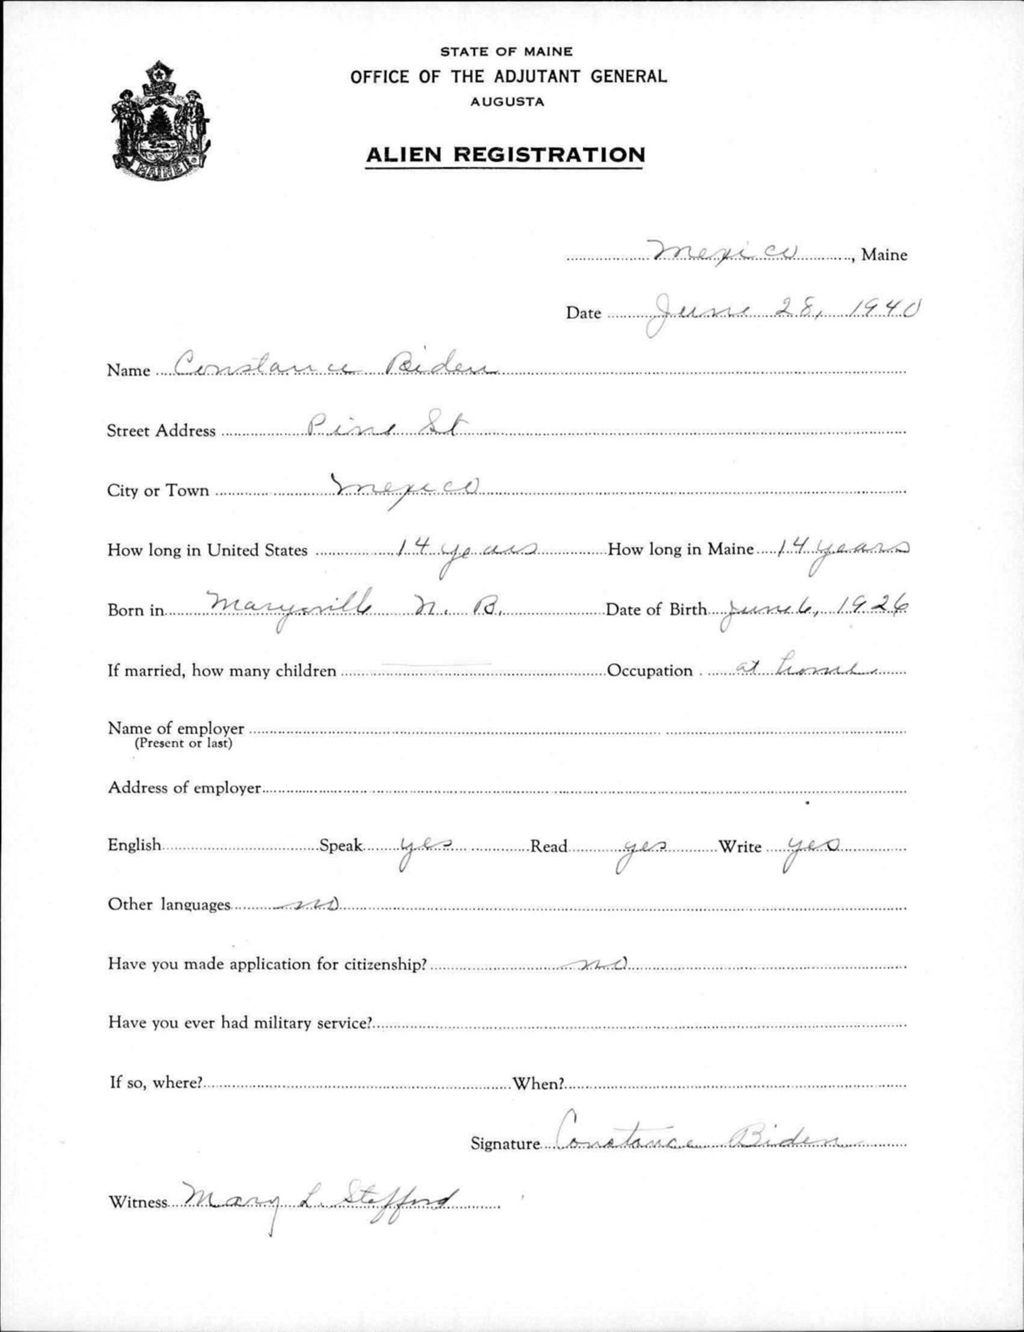 STATE OF MAINE
OFFICE OF THE ADJUTANT GENERAL
AUGUSTA
ALIEN REGISTRATION
MAINE
Mexico, Maine
Date June 28, 1940
Name Constance Biden
Street Address Pine St
City or Town Mexico
How long in United States 14 years How long in Maine 14 years
Born in Marysville N. B. Date of Birth June 6, 1926
If married, how many children Occupation at home
Name of employer
(Present or last)
Address of employer
English Speak yes Read yes Write yes
Other languages no
Have you made application for citizenship? no
Have you ever had military service?
If so, where? When?
Signature Constance Biden
Witness Mary L. Stafford